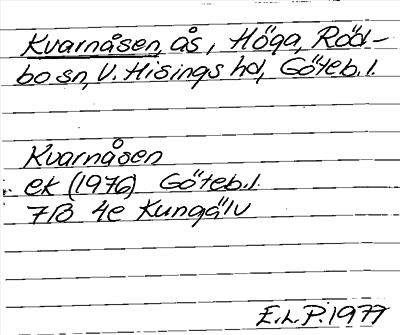 Kvarnåsen, ås, Höga, Röd-
bo sn, V. Hisings hd, Göteb. l.
Kvarnåsen
ek (1976) Göteb. l.
7B 4e Kungälv
E.L.P. 1977